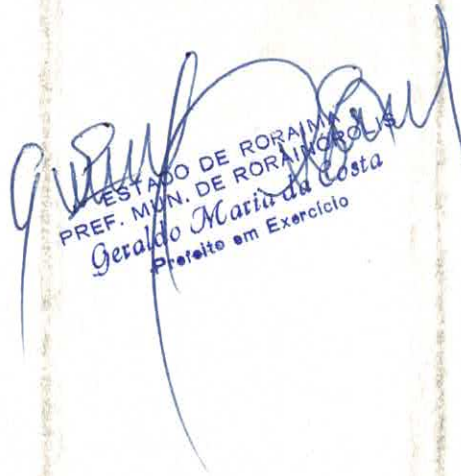 ESTADO DE RORAIMA
PREF. MUN. DE RORAINÓPOLIS
Geraldo Maria da Costa
Prefeito em Exercício